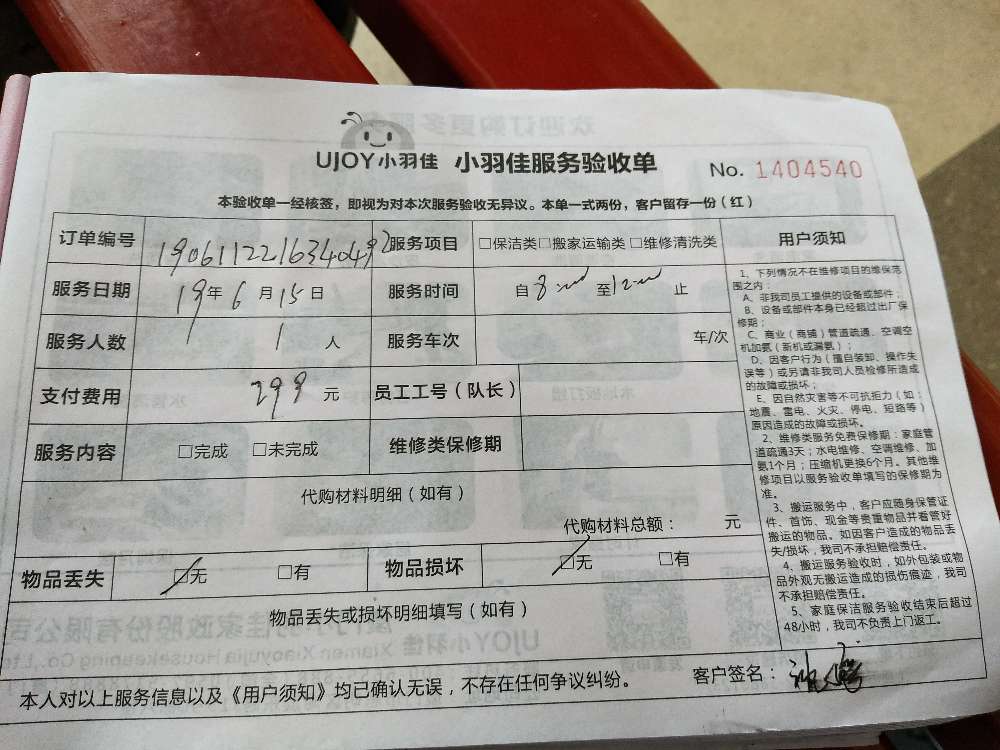 UJOY小羽佳 小羽佳服务验收单 No. 1404540
本验收单一经核签，即视为对本次服务验收无异议。本单一式两份，客户留存一份（红）
订单编号 190611221634049 2 服务项目 □保洁类□搬家运输类□维修清洗类
服务日期 19年6月15日 服务时间 自8:00至12:00止
服务人数 1人 服务车次 车/次
支付费用 299元 员工工号（队长）
服务内容 □完成 □未完成 维修类保修期
代购材料明细（如有）
代购材料总额： 元
物品丢失 □无 □有 物品损坏 □无 □有
物品丢失或损坏明细填写（如有）
本人对以上服务信息以及《用户须知》均已确认无误，不存在任何争议纠纷。 客户签名：
用户须知
1、下列情况不在维修项目的维保范
围之内：
A、非我司员工提供的设备或部件；
B、设备或部件本身已经超过出厂保
修期；
C、商业（商铺）管道疏通、空调空
机加氨（新机或漏氨）；
D、因客户行为（擅自装卸、操作失
误等）或另请非我司人员检修所造成
的故障或损坏；
E、因自然灾害等不可抗拒力（如：
地震、雷电、火灾、停电、短路等）
原因造成的故障或损坏。
2、维修类服务免费保修期：家庭管
道疏通3天；水电维修、空调维修、加
氨1个月；压缩机更换6个月。其他维
修项目以服务验收单填写的保修期为
准。
3、搬运服务中，客户应随身保管证
件、首饰、现金等贵重物品并看管好
搬运的物品。如因客户造成的物品丢
失/损坏，我司不承担赔偿责任。
4、搬运服务验收时，如外包装或物
品外观无搬运造成的损伤痕迹，我司
不承担赔偿责任。
5、家庭保洁服务验收结束后超过
48小时，我司不负责上门返工。